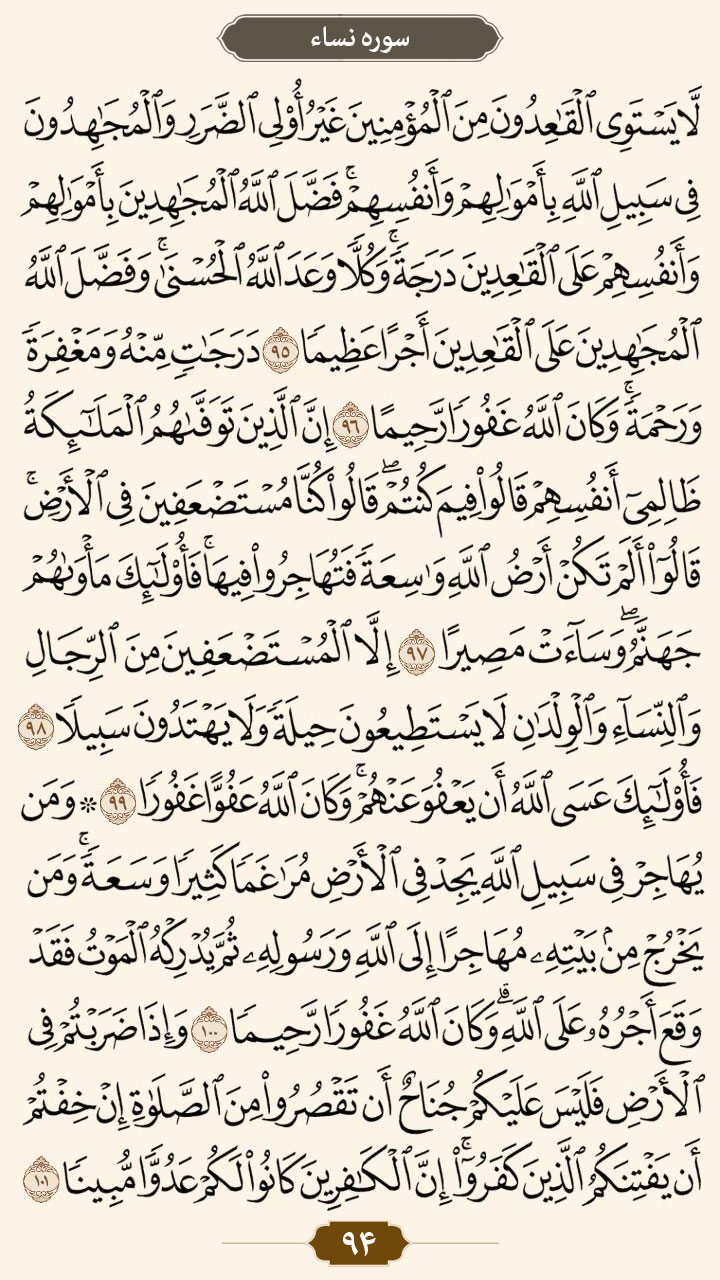 سوره نساء
لَّا يَسْتَوِى ٱلْقَـٰعِدُونَ مِنَ ٱلْمُؤْمِنِينَ غَيْرُ أُو۟لِى ٱلضَّرَرِ وَٱلْمُجَـٰهِدُونَ
فِى سَبِيلِ ٱللَّهِ بِأَمْوَٰلِهِمْ وَأَنفُسِهِمْ ۚ فَضَّلَ ٱللَّهُ ٱلْمُجَـٰهِدِينَ بِأَمْوَٰلِهِمْ
وَأَنفُسِهِمْ عَلَى ٱلْقَـٰعِدِينَ دَرَجَةً ۚ وَكُلًّا وَعَدَ ٱللَّهُ ٱلْحُسْنَىٰ ۚ وَفَضَّلَ ٱللَّهُ
ٱلْمُجَـٰهِدِينَ عَلَى ٱلْقَـٰعِدِينَ أَجْرًا عَظِيمًا ٩٥ دَرَجَـٰتٍ مِّنْهُ وَمَغْفِرَةً
وَرَحْمَةً ۚ وَكَانَ ٱللَّهُ غَفُورًا رَّحِيمًا ٩٦ إِنَّ ٱلَّذِينَ تَوَفَّىٰهُمُ ٱلْمَلَـٰٓئِكَةُ
ظَالِمِىٓ أَنفُسِهِمْ قَالُوا۟ فِيمَ كُنتُمْ ۖ قَالُوا۟ كُنَّا مُسْتَضْعَفِينَ فِى ٱلْأَرْضِ ۚ
قَالُوٓا۟ أَلَمْ تَكُنْ أَرْضُ ٱللَّهِ وَٰسِعَةً فَتُهَاجِرُوا۟ فِيهَا ۚ فَأُو۟لَـٰٓئِكَ مَأْوَىٰهُمْ
جَهَنَّمُ ۖ وَسَآءَتْ مَصِيرًا ٩٧ إِلَّا ٱلْمُسْتَضْعَفِينَ مِنَ ٱلرِّجَالِ
وَٱلنِّسَآءِ وَٱلْوِلْدَٰنِ لَا يَسْتَطِيعُونَ حِيلَةً وَلَا يَهْتَدُونَ سَبِيلًا ٩٨
فَأُو۟لَـٰٓئِكَ عَسَى ٱللَّهُ أَن يَعْفُوَ عَنْهُمْ ۚ وَكَانَ ٱللَّهُ عَفُوًّا غَفُورًا ٩٩ * وَمَن
يُهَاجِرْ فِى سَبِيلِ ٱللَّهِ يَجِدْ فِى ٱلْأَرْضِ مُرَٰغَمًا كَثِيرًا وَسَعَةً ۚ وَمَن
يَخْرُجْ مِنۢ بَيْتِهِۦ مُهَاجِرًا إِلَى ٱللَّهِ وَرَسُولِهِۦ ثُمَّ يُدْرِكْهُ ٱلْمَوْتُ فَقَدْ
وَقَعَ أَجْرُهُۥ عَلَى ٱللَّهِ ۗ وَكَانَ ٱللَّهُ غَفُورًا رَّحِيمًا ١٠٠ وَإِذَا ضَرَبْتُمْ فِى
ٱلْأَرْضِ فَلَيْسَ عَلَيْكُمْ جُنَاحٌ أَن تَقْصُرُوا۟ مِنَ ٱلصَّلَوٰةِ إِنْ خِفْتُمْ
أَن يَفْتِنَكُمُ ٱلَّذِينَ كَفَرُوٓا۟ ۚ إِنَّ ٱلْكَـٰفِرِينَ كَانُوا۟ لَكُمْ عَدُوًّا مُّبِينًا ١٠١
۹۴